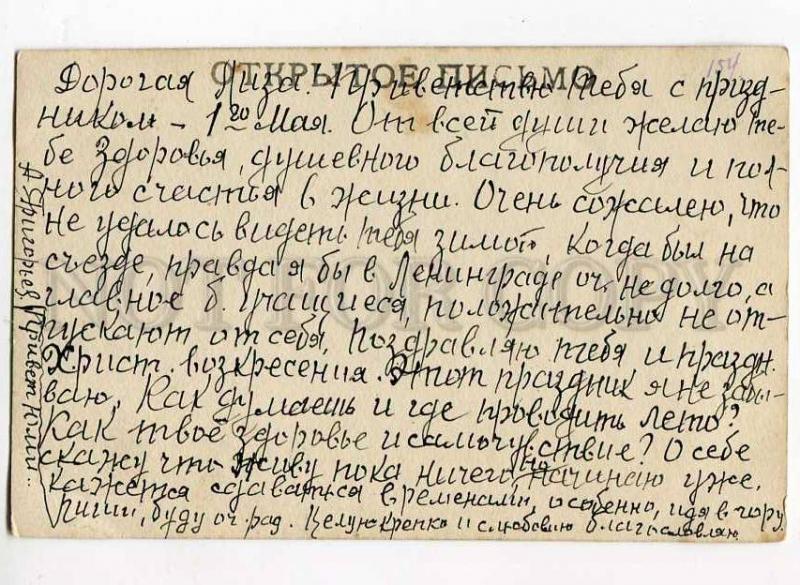 ОТКРЫТОЕ ПИСЬМО
154
Дорогая Лиза. Приветствую тебя с празд-
ником – 1го Мая. От всей души желаю те-
бе здоровья, душевного благополучия и пол-
ного счастья в жизни. Очень сожалею, что
не удалось видеть тебя зимой, когда был на
съезде, правда я был в Ленинграде оч. недолго, а
главное б. учащиеся, положительно не от-
пускают от себя. Поздравляю тебя и праздн.
Христ. возкресения. Этот праздник я не забы-
ваю. Как думаешь и где проводить лето?
Как твоё здоровье и самочувствие? О себе
скажу что живу пока ничего, но начинаю уже,
кажется сдаваться временами, особенно, идя в гору.
Пиши, буду оч. рад. Целую крепко и с любовью благословляю
А. Григорьев Привет
NOT FOR COPY